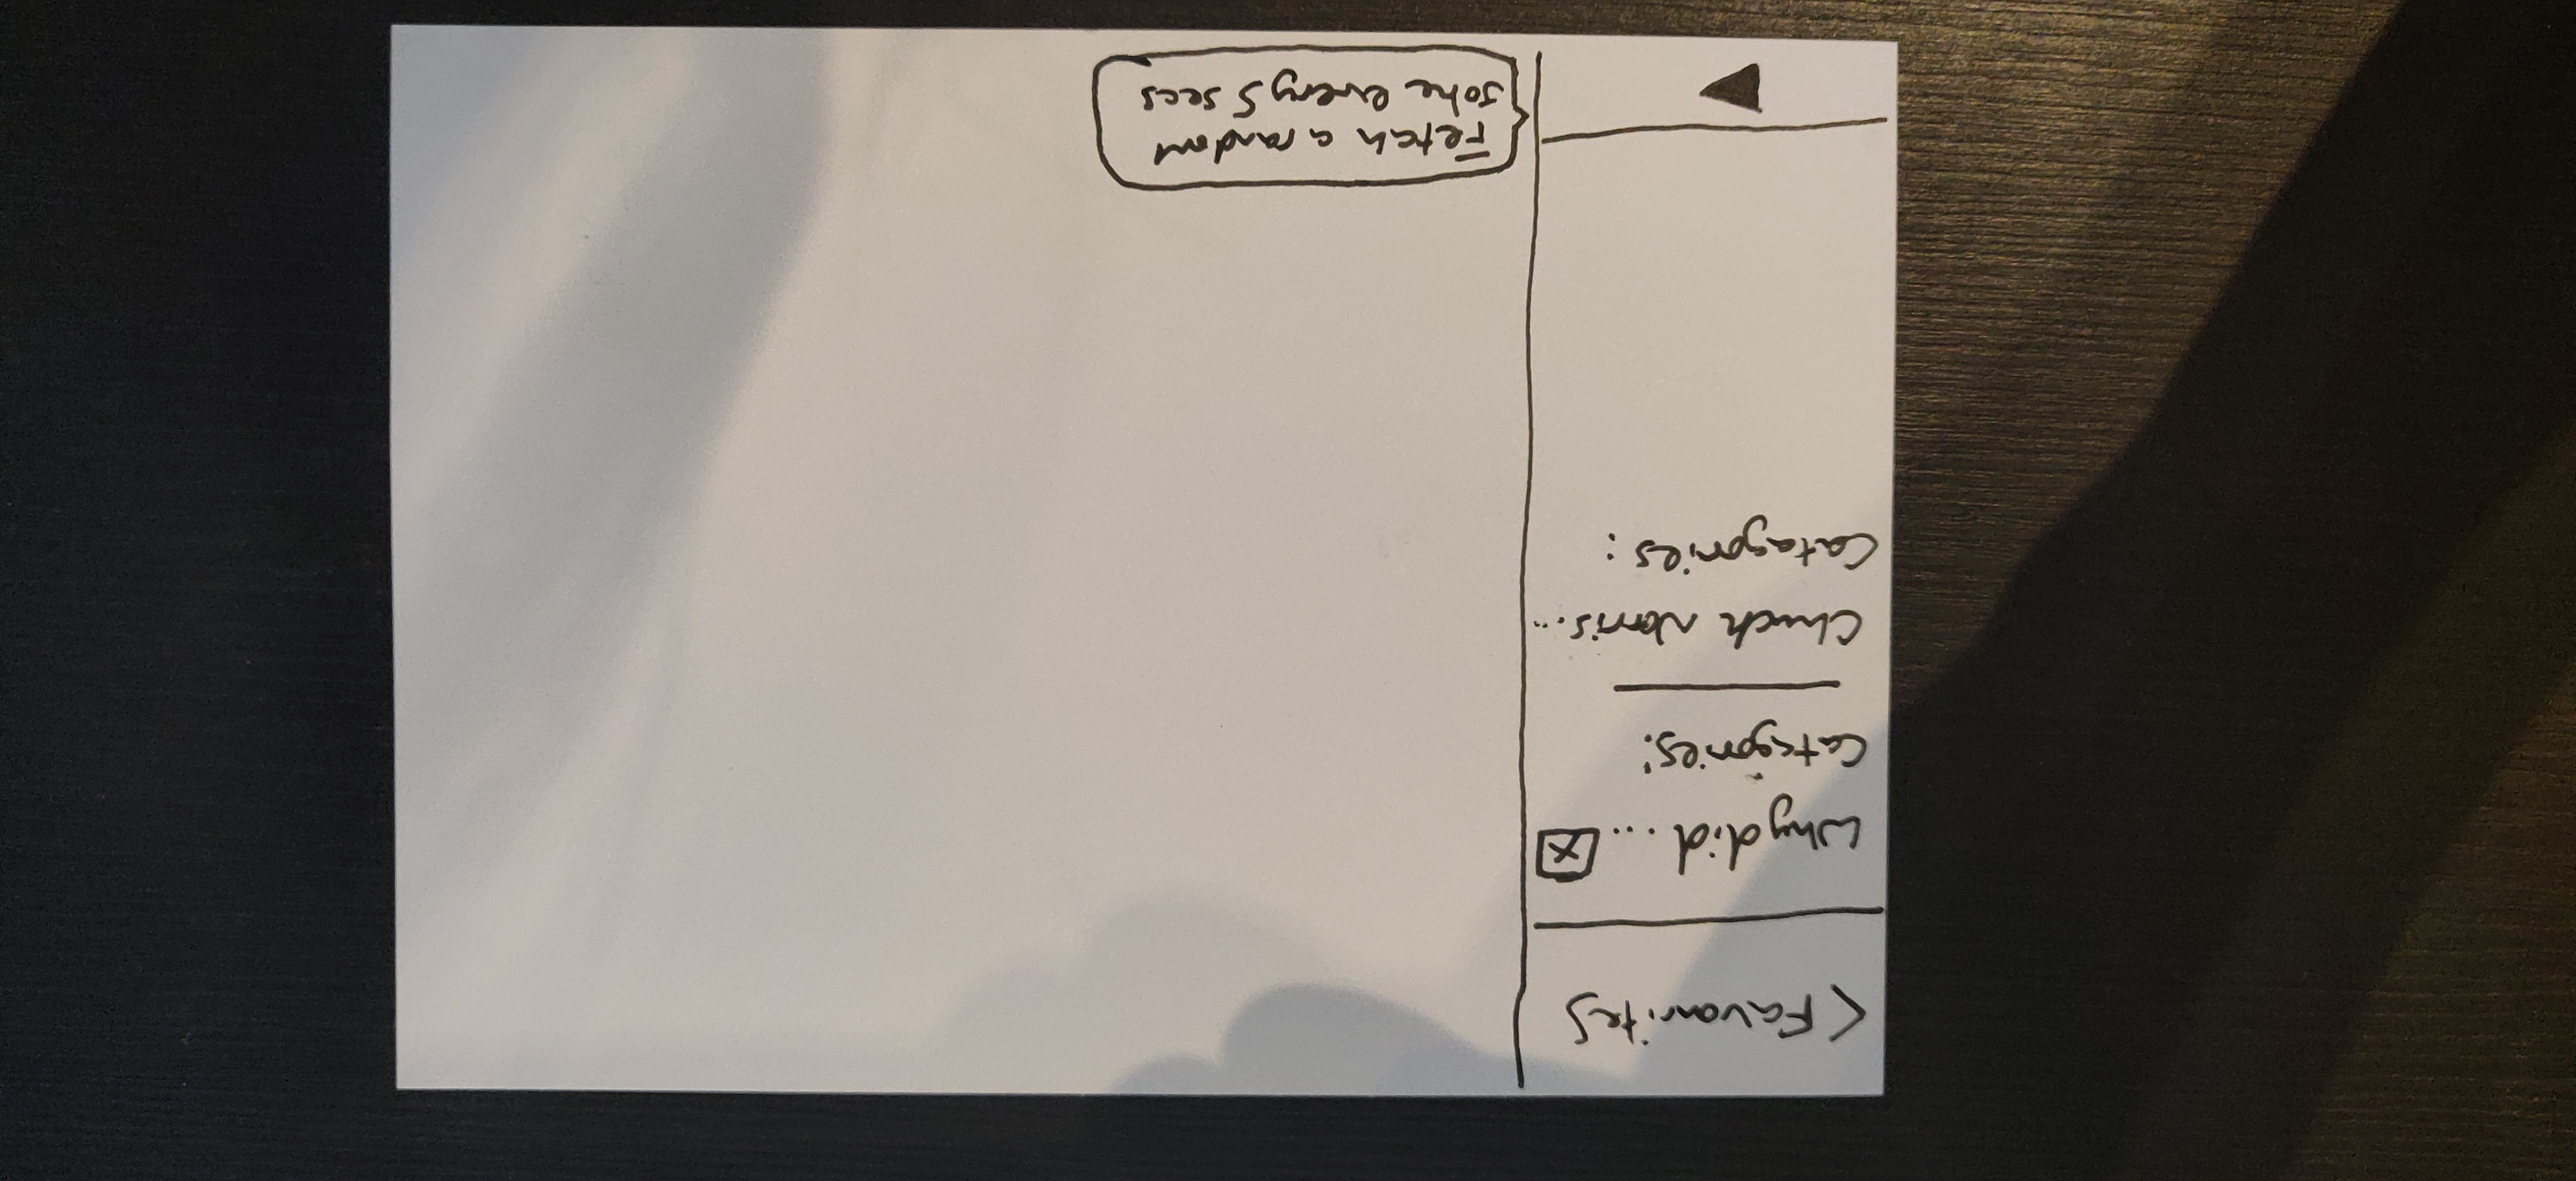 < Favourites
Why did... x
Categories:
Chuck Norris...
Catagories:
Fetch a random
joke every 5 secs